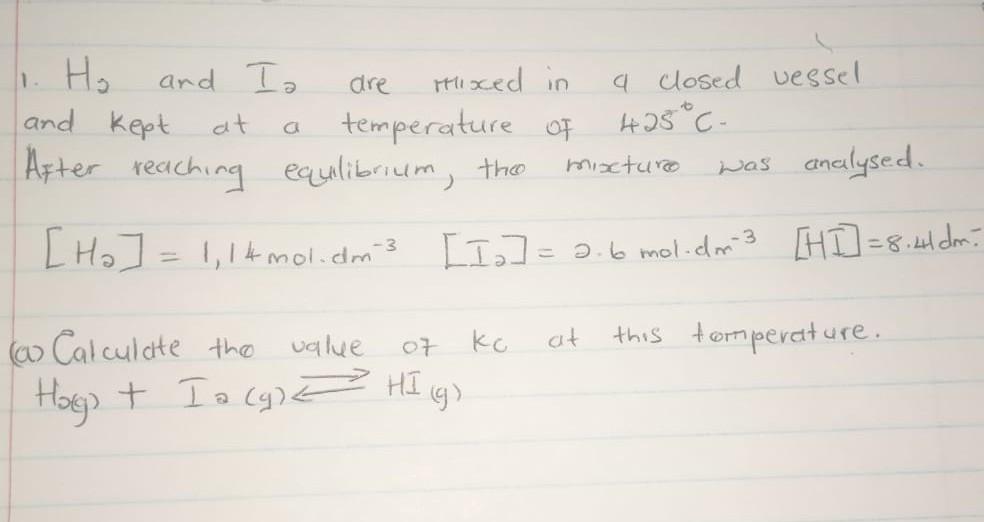 1. H₂ and I₂ are mixed in a closed vessel
and kept at a temperature of 425°C.
After reaching equilibrium, the mixture was analysed.
[H₂] = 1,14 mol.dm⁻³ [I₂] = 2.6 mol.dm⁻³ [HI] = 8.41 dm⁻
(a) Calculate the value of kc at this temperature.
H₂(g) + I₂(g) ⇌ HI(g)